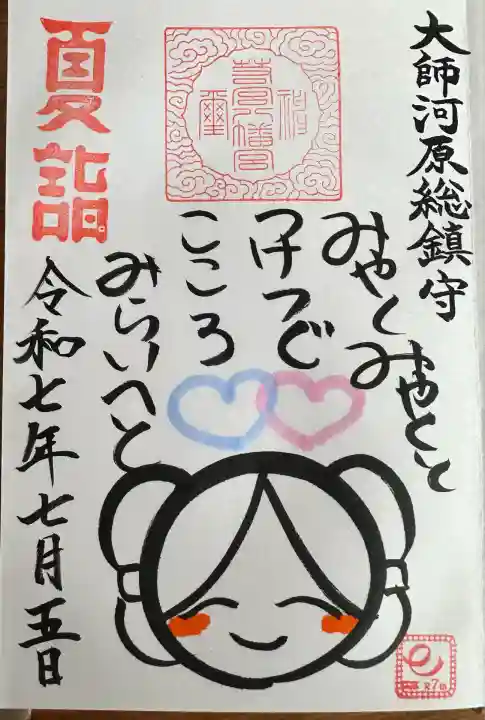 大師河原総鎮守
みやくみやくと
つけつぐ
こころ
みらいへと
夏詣
令和七年七月五日